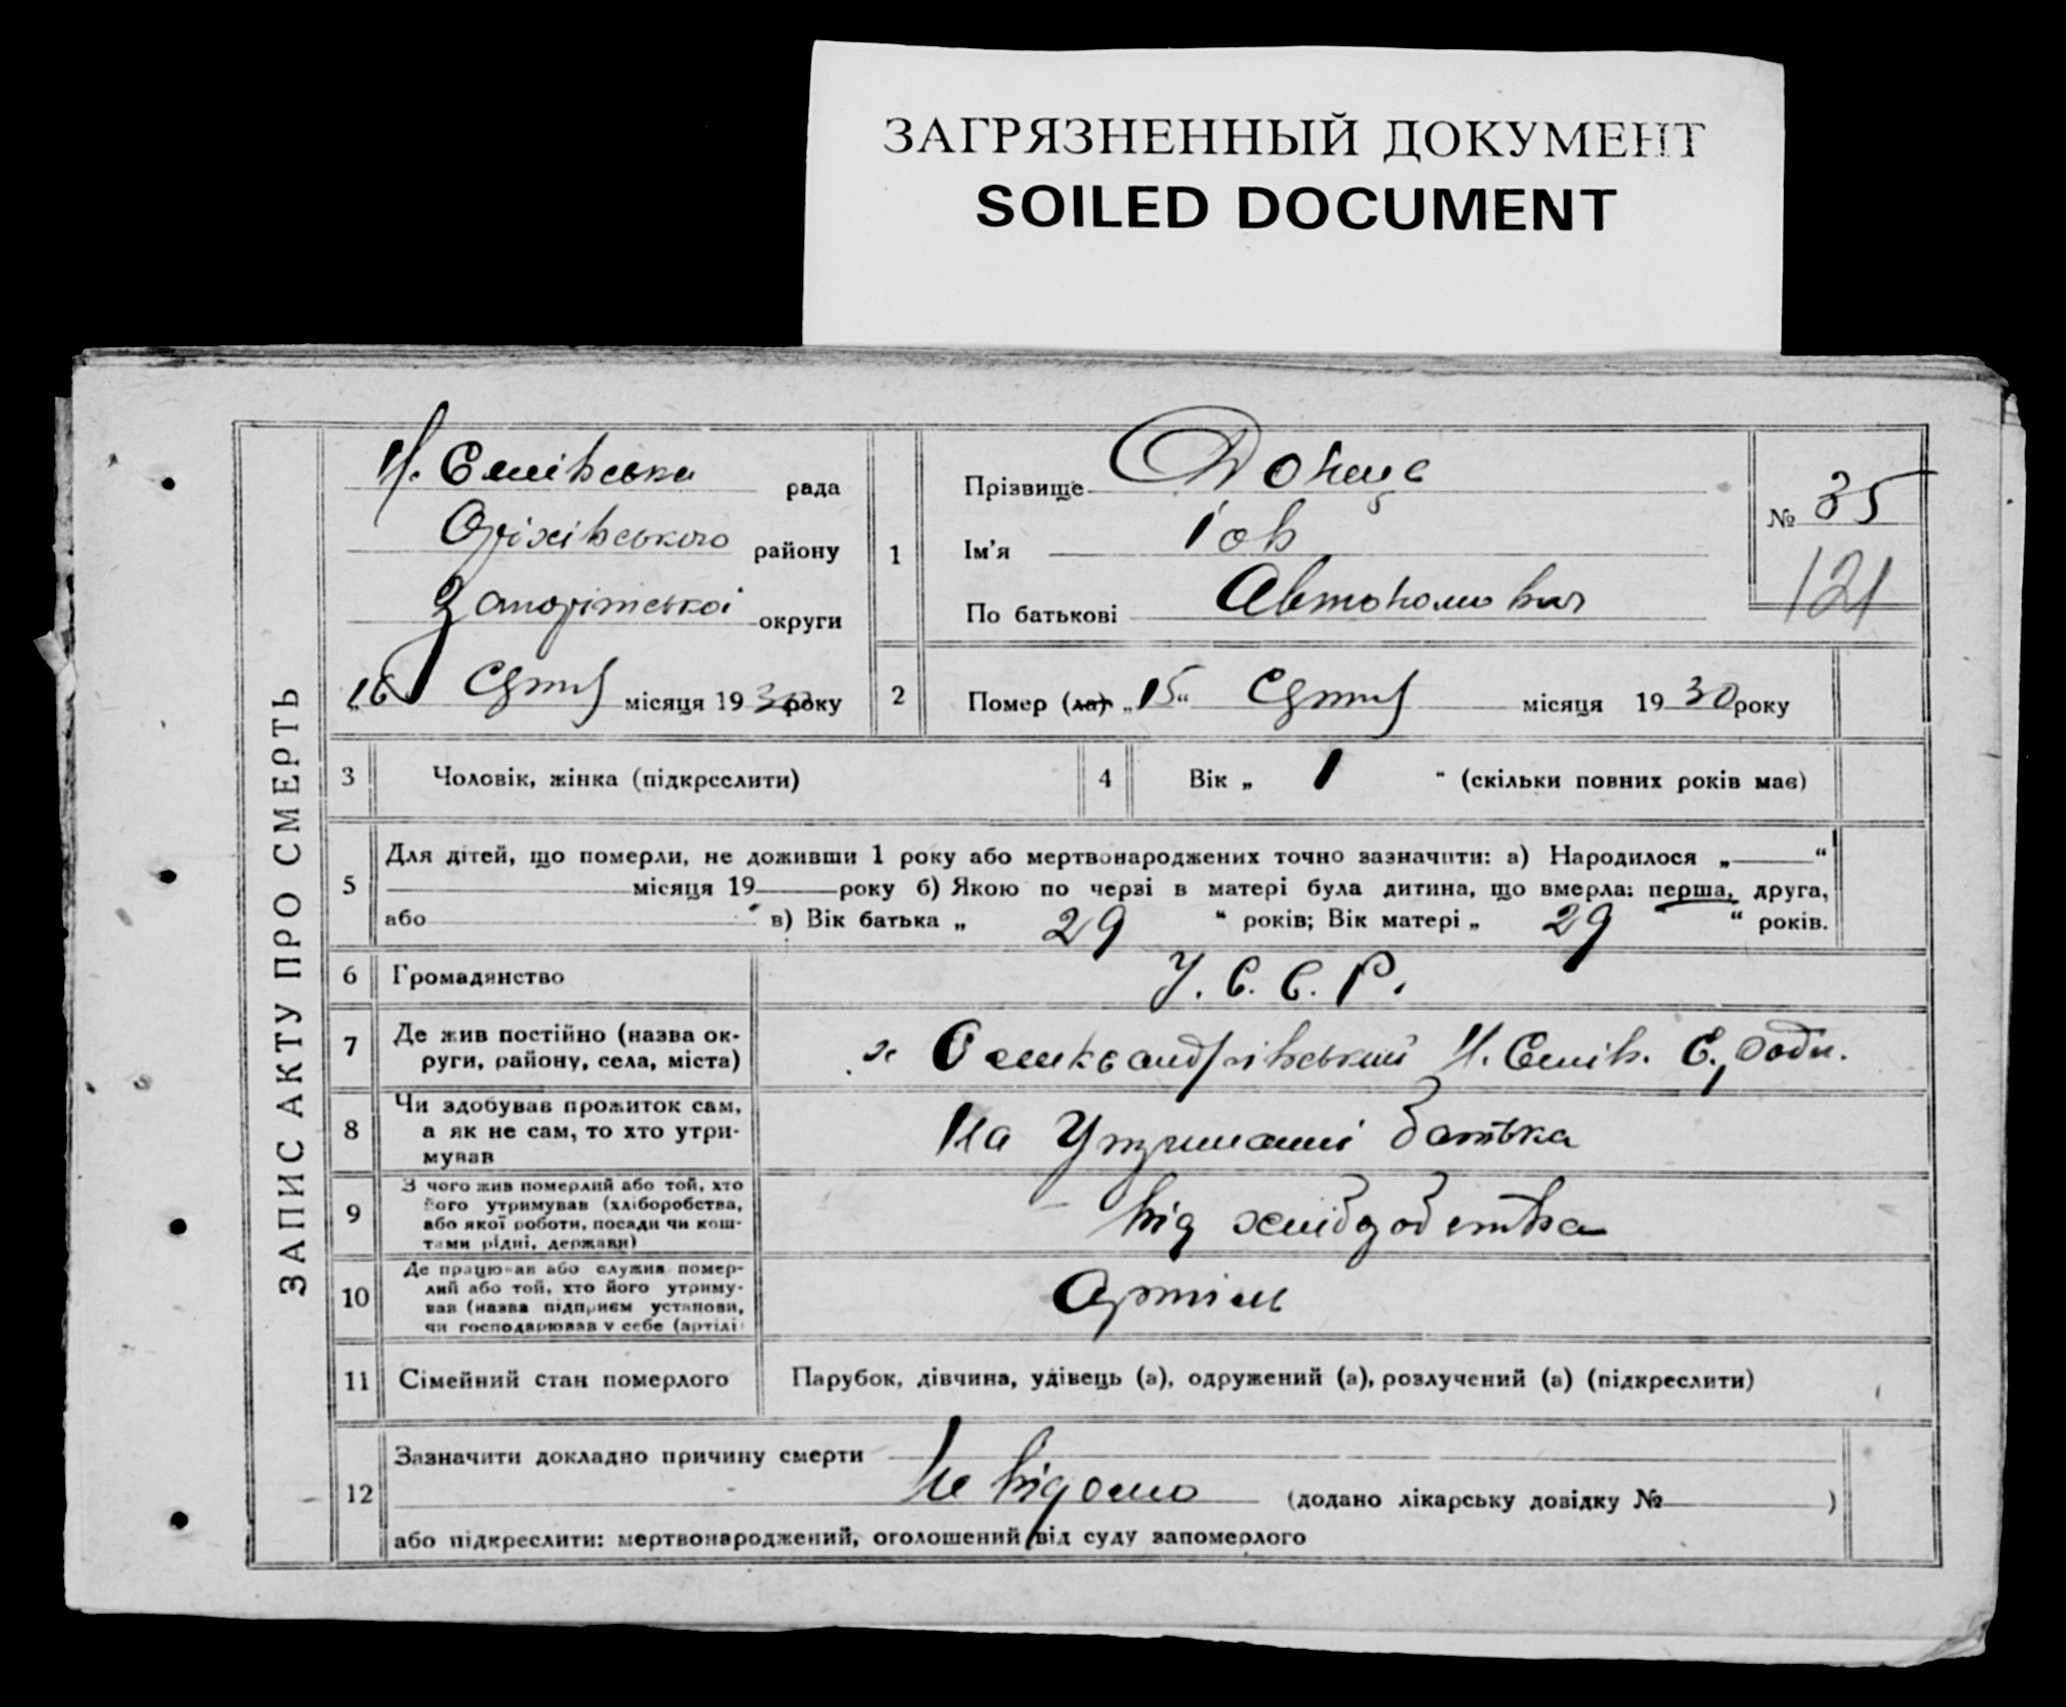 ЗАГРЯЗНЕННЫЙ ДОКУМЕНТ
SOILED DOCUMENT
ЗАПИС АКТУ ПРО СМЕРТЬ
Н. Єлнівська рада
Оріхівського району
Запоріжської округи
„16 місяця 1930 року
1
Прізвище Донець
Ім'я Іов
По батькові Автономович
№ 35
121
2
Помер (ла) „15“ місяця 1930 року
3 Чоловік, жінка (підкреслити)
4 Вік „ 1 “ (скільки повних років має)
5
Для дітей, що померли, не доживши 1 року або мертвонароджених точно зазначити: а) Народилося „ “
місяця 19 року б) Якою по черзі в матері була дитина, що вмерла: перша, друга,
або в) Вік батька „ 29 “ років; Вік матері „ 29 “ років.
6 Громадянство У. С. С. Р.
7 Де жив постійно (назва ок-
руги, району, села, міста)
х Олександрівський Н.
8 Чи здобував прожиток сам,
а як не сам, то хто утри-
мував
На Утриманні батька
9 З чого жив померлий або той, хто
його утримував (хліборобства,
або якої роботи, посади чи кош-
тами рідні, держави)
від хлібороб
10 Де працював або служив помер-
лий або той, хто його утриму-
вав (назва підприєм установи,
чи господарював у себе (артілі)
Артіль
11 Сімейний стан померлого
Парубок, дівчина, удівець (а), одружений (а), розлучений (а) (підкреслити)
12
Зазначити докладно причину смерти
Не відомо (додано лікарську довідку № )
або підкреслити: мертвонароджений, оголошений від суду запомерлого